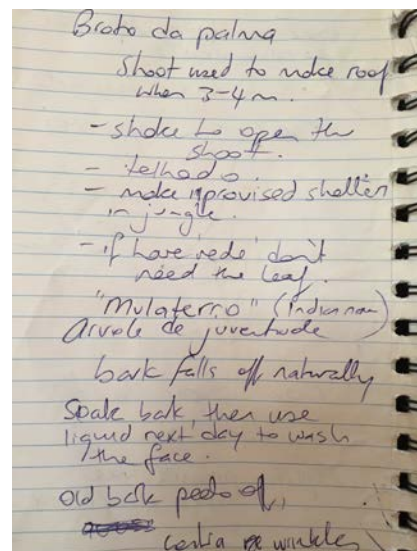 Broto da palma
Shoot used to make roof
when 3-4 m.
- shake to open the
shoot.
- telhado.
- make improvised shelter
in jungle.
- if have 'rede' don't
need the leaf.
"Mulaterro" (Indian name)
Arvole de juventude
bark falls off naturally
Soak bark, then use
liquid next day to wash
the face.
Old bark peels off,
contra wrinkles